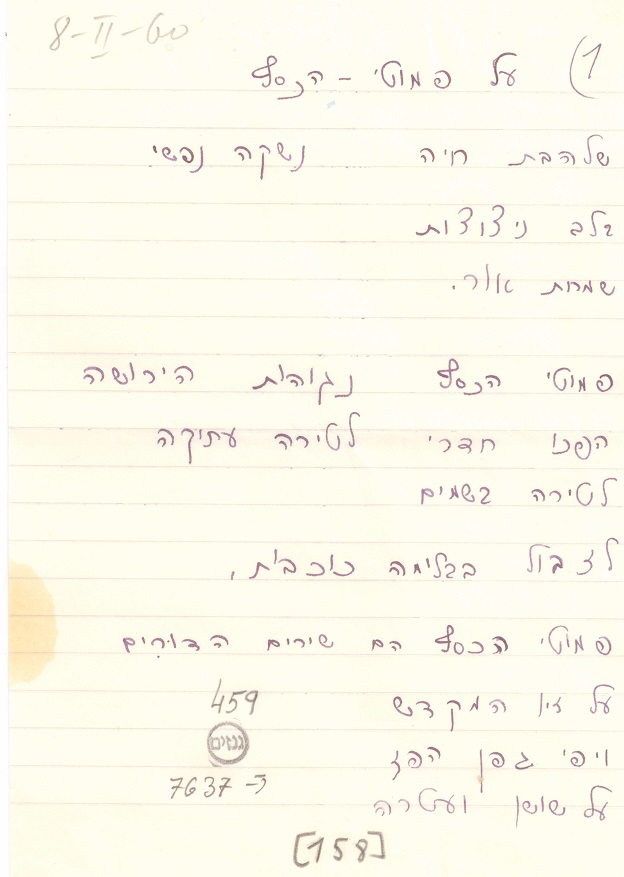 8-II-60
1) על פמוטי - הכסף
שלהבת חיה נשקה נפשי
בלב ניצוצות
שמחת אור.
פמוטי הכסף נגוהות הירושה
הפכו חדרי לטירה עתיקה
לטירה בשמים
לזבול בגלימה כוכבית,
פמוטי הכסף הם שירים הדורים
על זיו המקדש
ויפי גפן הפז
על שושן ועטרה
459
גנזים
7637 - כ
[158]